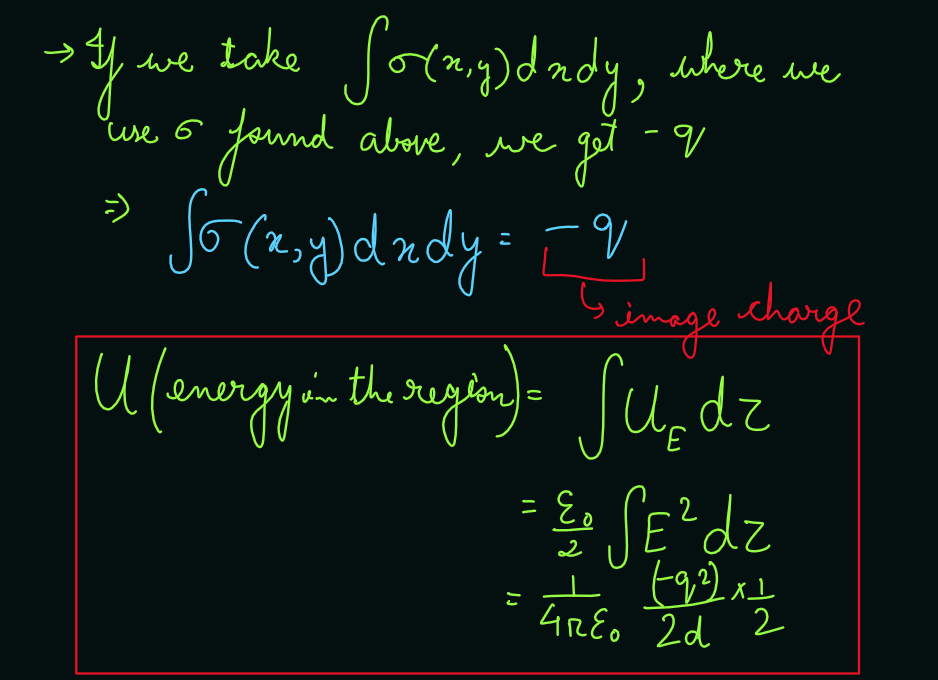 → If we take ∫σ(x,y)dxdy, where we
use σ found above, we get -q
⇒ ∫σ(x,y)dxdy = -q
↳ image charge
U(energy in the region) = ∫U_E dτ
= ε₀/2 ∫E² dτ
= 1/4πε₀ (-q²)/2d × 1/2